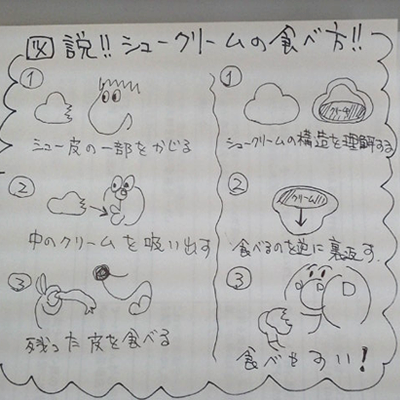 図説!! シュークリームの食べ方!!
①
シュー皮の一部をかじる
②
中のクリームを吸い出す
③
残った皮を食べる
①
クリーム
シュークリームの構造を理解する
②
クリーム
食べるのを逆に裏返す
③
食べやすい!